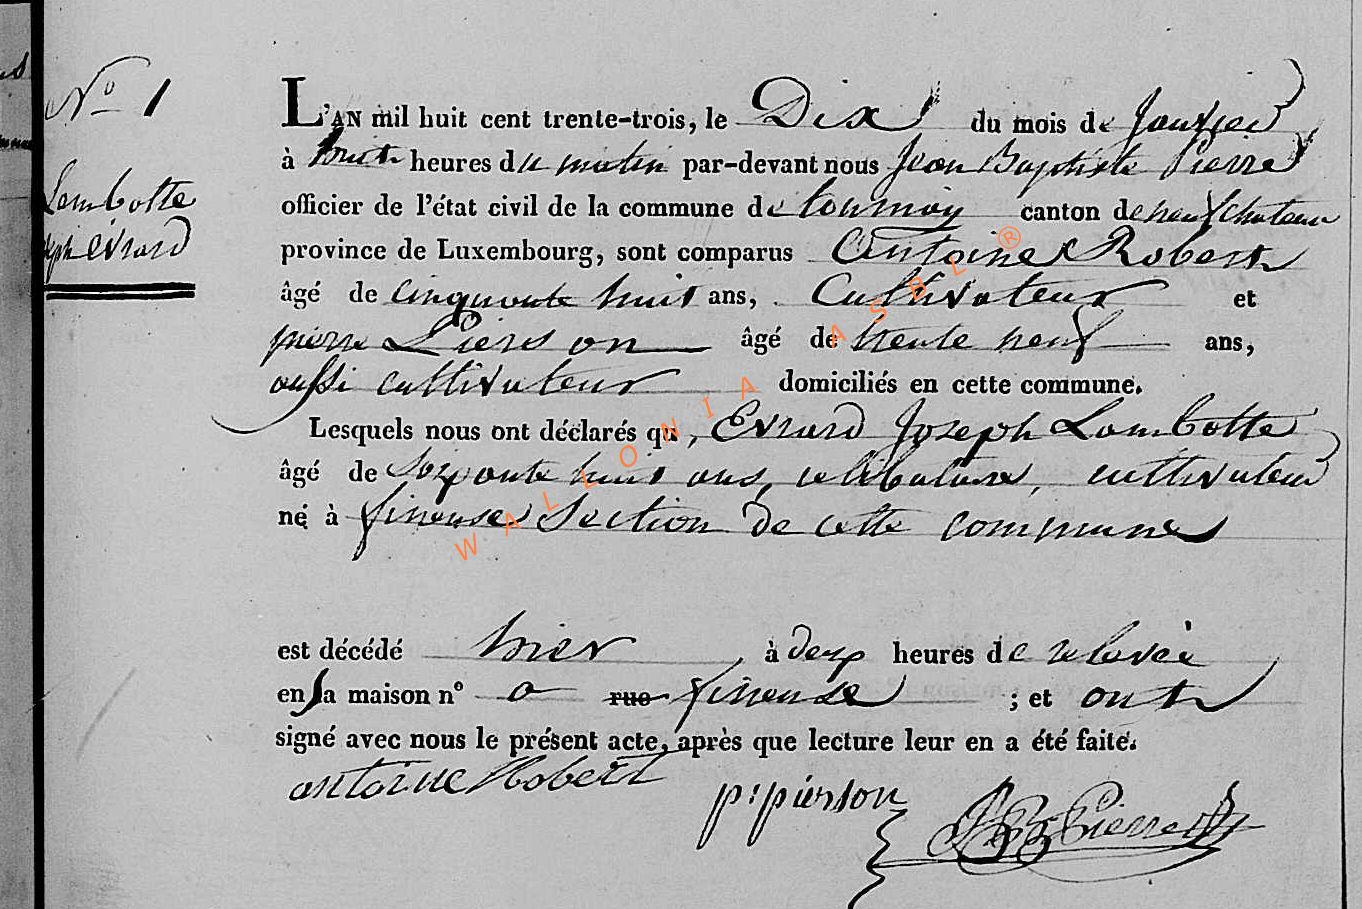 N° 1
Lambotte
Evrard
L'AN mil huit cent trente-trois, le Dix du mois de Janvier
à huit heures du matin par-devant nous Jean Baptiste Pierre
officier de l'état civil de la commune de tournay canton de neufchateau
province de Luxembourg, sont comparus Antoine Robert
âgé de cinquante huit ans, Cultivateur et
pierre Pierson âgé de trente neuf ans,
aussi cultivateur domiciliés en cette commune.
Lesquels nous ont déclarés qu, Evrard Joseph Lambotte
âgé de soixante huit ans, celibataire, cultivateur
né à fineuse Section de cette commune
est décédé hier à deux heures de relevée
en sa maison n° 0 rue fineuse ; et ont
signé avec nous le présent acte, après que lecture leur en a été faite.
antoine Robert
p: pierson
JB Pierre
WALLONIA ASBL ®